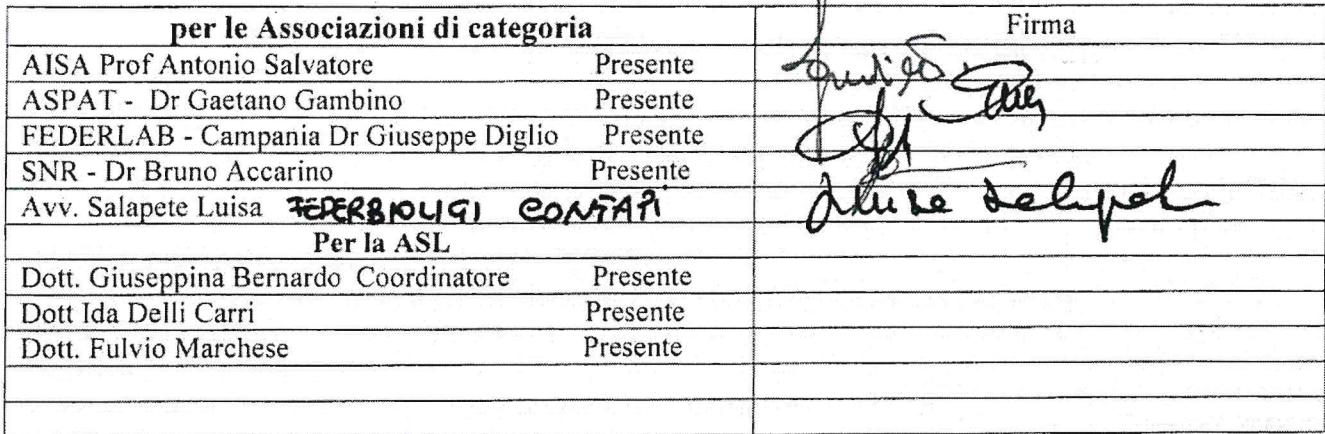 per le Associazioni di categoria Firma
AISA Prof Antonio Salvatore Presente
ASPAT - Dr Gaetano Gambino Presente
FEDERLAB - Campania Dr Giuseppe Diglio Presente
SNR - Dr Bruno Accarino Presente
Avv. Salapete Luisa
Per la ASL
Dott. Giuseppina Bernardo Coordinatore Presente
Dott Ida Delli Carri Presente
Dott. Fulvio Marchese Presente